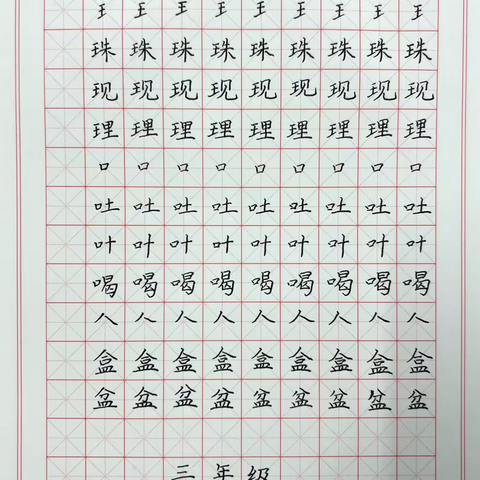 王 王 王 王 王 王 王 王 王
珠 珠 珠 珠 珠 珠 珠 珠 珠
现 现 现 现 现 现 现 现 现
理 理 理 理 理 理 理 理 理
口 口 口 口 口 口 口 口 口
吐 吐 吐 吐 吐 吐 吐 吐 吐
叶 叶 叶 叶 叶 叶 叶 叶 叶
喝 喝 喝 喝 喝 喝 喝 喝 喝
人 人 人 人 人 人 人 人 人
盒 盒 盒 盒 盒 盒 盒 盒 盒
盆 盆 盆 盆 盆 盆 盆 盆 盆
三年级